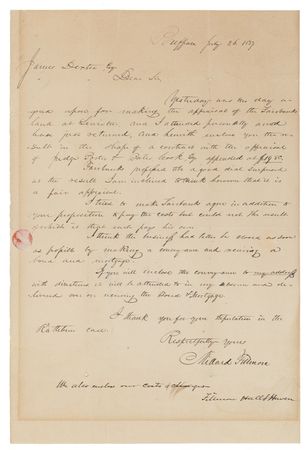 Buffalo July 26 1837
James Dexter Esq
Dear Sir
Yesterday was the day a-
greed upon for making the appraisal of the Fairbanks
land at and I attended personally and
have just returned, and herewith enclose you the re-
sult in the shape of a contract with the appraisal
of Judge & Cook Esq appended at
Fairbanks professed to be a good deal surprised
at the result. I am inclined to think however that it is
a fair appraisal.
I tried to make Fairbanks agree in addition to
your proposition to pay the costs but could not. The result
is each pays his own.
I think the business had better be closed as soon
as possible by making a conveyance and receiving a
bond and mortgage.
If you will enclose the conveyance to my address
with directions it will be attended to in my absence and de-
livered over on receiving the Bond & Mortgage.
I thank you for your stipulation in the
case.
Respectfully Yours
Millard Fillmore
We also enclose our costs &
Fillmore Hall & Haven